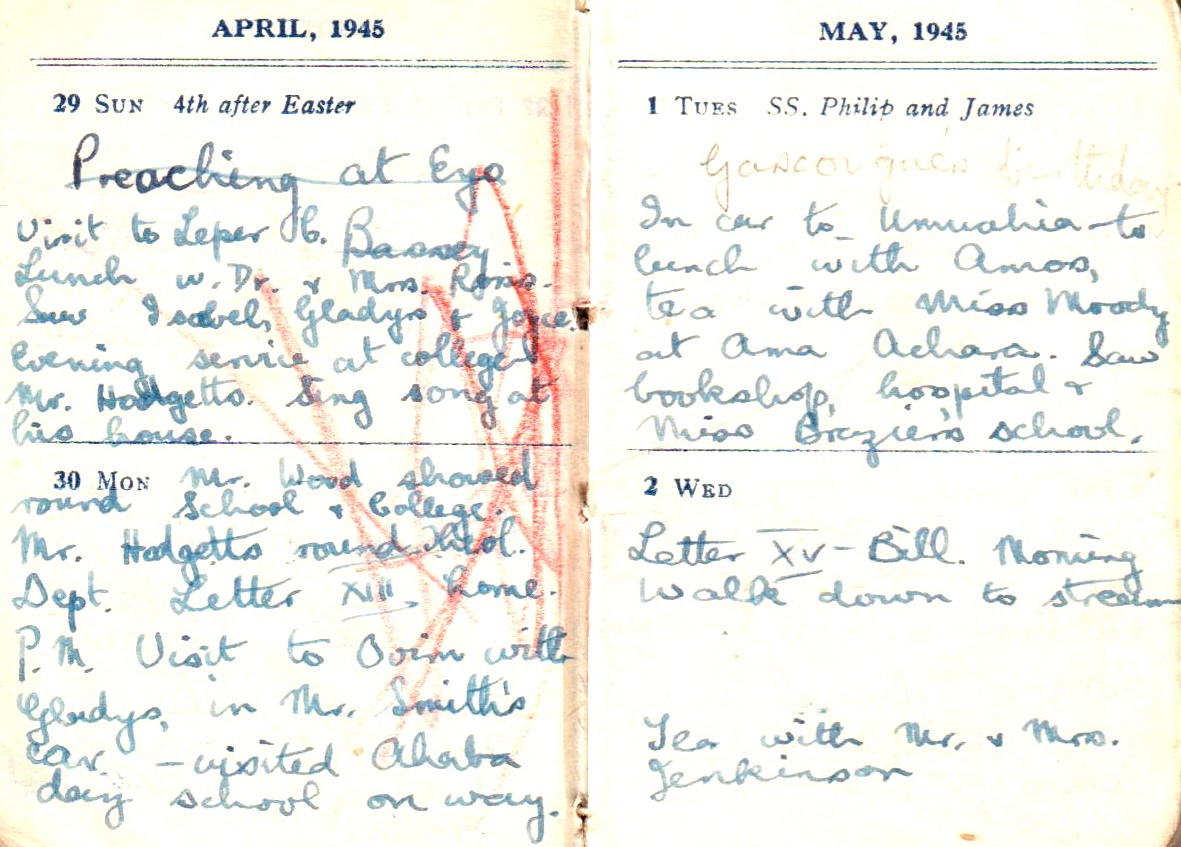 APRIL, 1945
29 SUN 4th after Easter
Preaching at Eyo
Visit to Leper C. Bassey
Lunch w. Dr. & Mrs. Ross.
Saw Isobel, Gladys & Joyce.
Evening service at college
Mr. Hodgetts. Sing song at
his house.
30 MON Mr. Wood showed
round School & College.
Mr. Hodgetts round Theol.
Dept. Letter XIII, home.
P.M. Visit to Ovim with
Gladys, in Mr. Smith's
car. – visited Ahaba
day school on way.
MAY, 1945
1 TUES SS. Philip and James
Gascoigne's birthday
In car to Umuahia – to
lunch with Amos,
tea with Miss Moody
at Ama Achara. Saw
bookshop, hospital &
Miss Brazier's school.
2 WED
Letter XV – Bill. Morning
Walk down to stream
Tea with Mr. & Mrs.
Jenkinson